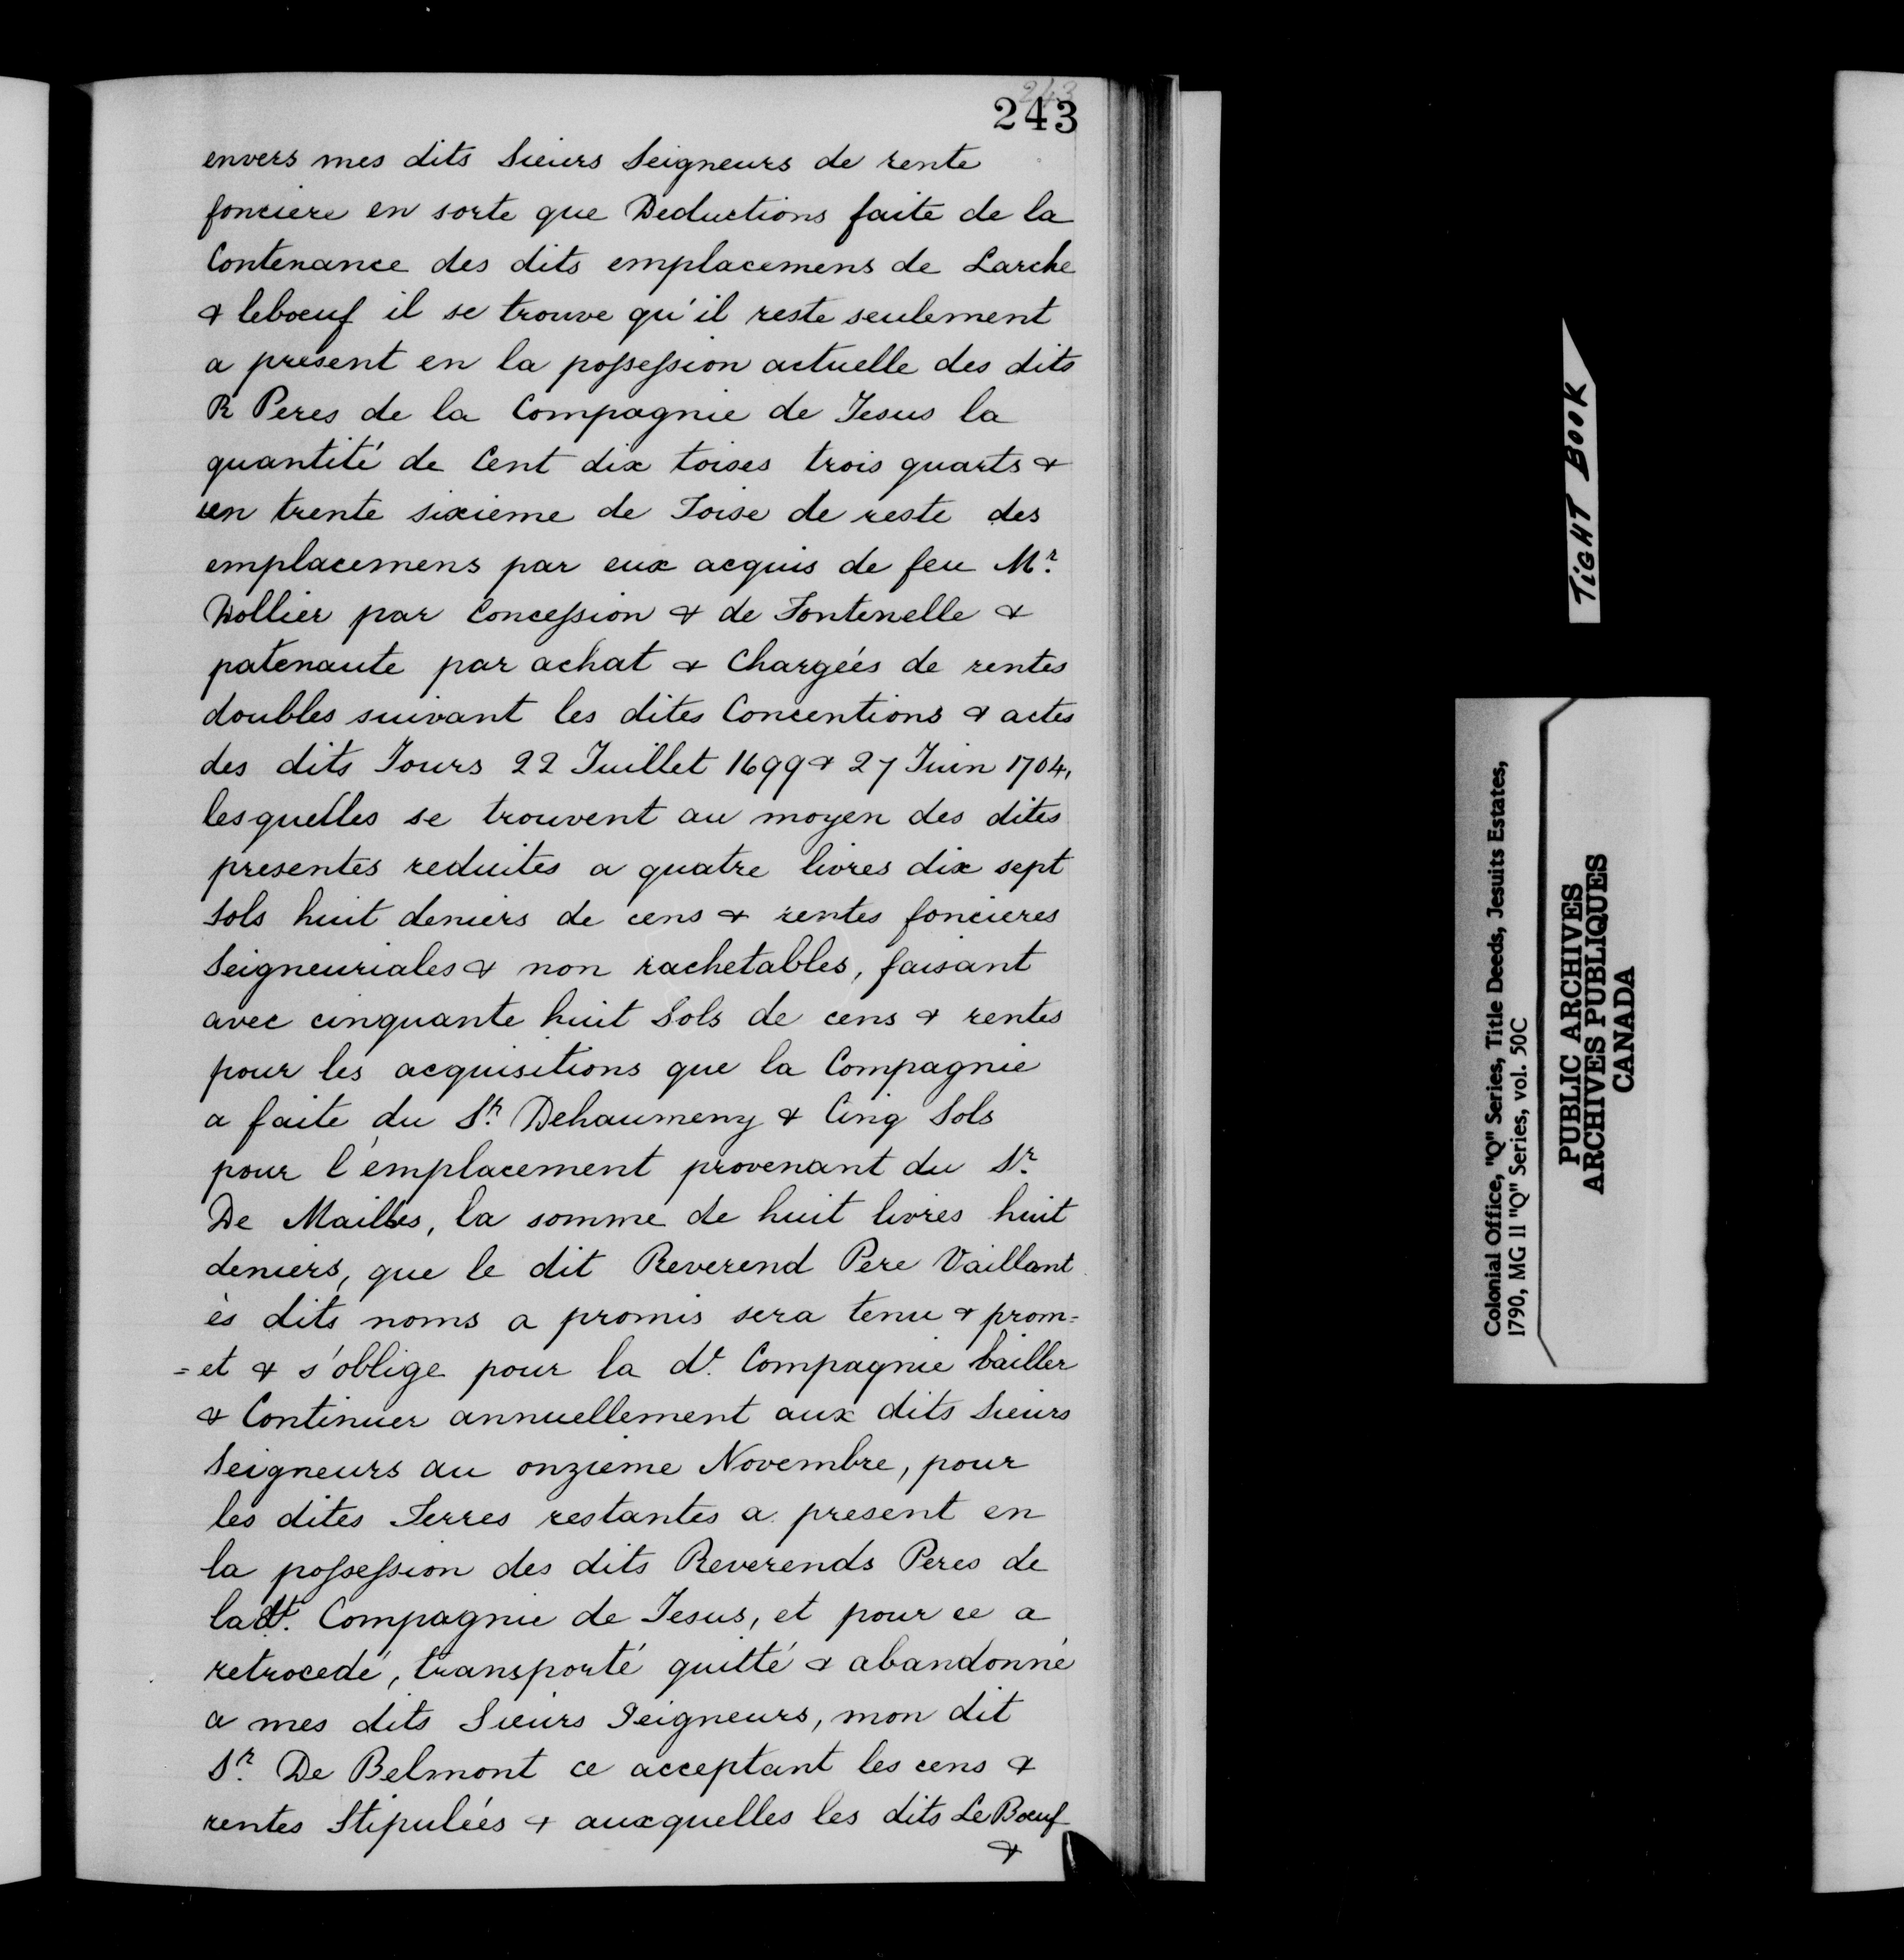 243
243
envers mes dits Sieurs Seigneurs de rente
fonciere en sorte que Deductions faite de la
Contenance des dits emplacemens de Larche
& leboeuf il se trouve qu'il reste seulement
a present en la possession actuelle des dits
R Peres de la Compagnie de Jesus la
quantité de Cent dix toises trois quarts &
un trente sixieme de Toise de reste des
emplacemens par eux acquis de feu Mr.
Dollier par Concession & de Fontenelle &
patenaute par achat & Chargeés de rentes
doubles suivant les dites Concentions & actes
des dits Jours 22 Juillet 1699 & 27 Juin 1704,
lesquelles se trouvent au moyen des dites
presentes reduites a quatre livres dix sept
Sols huit deniers de cens & rentes foncieres
Seigneuriales & non rachetables, faisant
avec cinquante huit Sols de cens & rentes
pour les acquisitions que la Compagnie
a faite du Sr. Dehaumeny & Cinq Sols
pour l'emplacement provenant du Sr.
De Mailles, la somme de huit livres huit
deniers, que le dit Reverend Pere Vaillant
ès dits noms a promis sera tenu & prom=
=et & s'oblige pour la dt. Compagnie bailler
& Continuer annuellement aux dits Sieurs
Seigneurs au onzieme Novembre, pour
les dites Terres restantes a present en
la possession des dits Reverends Peres de
la dt. Compagnie de Jesus, et pour ce a
retrocedé, transporté quitté & abandonné
a mes dits Sieurs Seigneurs, mon dit
Sr. De Belmont ce acceptant les cens &
rentes Stipuleés & auxquelles les dits Le Boeuf
&
TIGHT BOOK
Colonial Office, "Q" Series, Title Deeds, Jesuits Estates,
1790, MG 11 "Q" Series, vol. 50C
PUBLIC ARCHIVES
ARCHIVES PUBLIQUES
CANADA